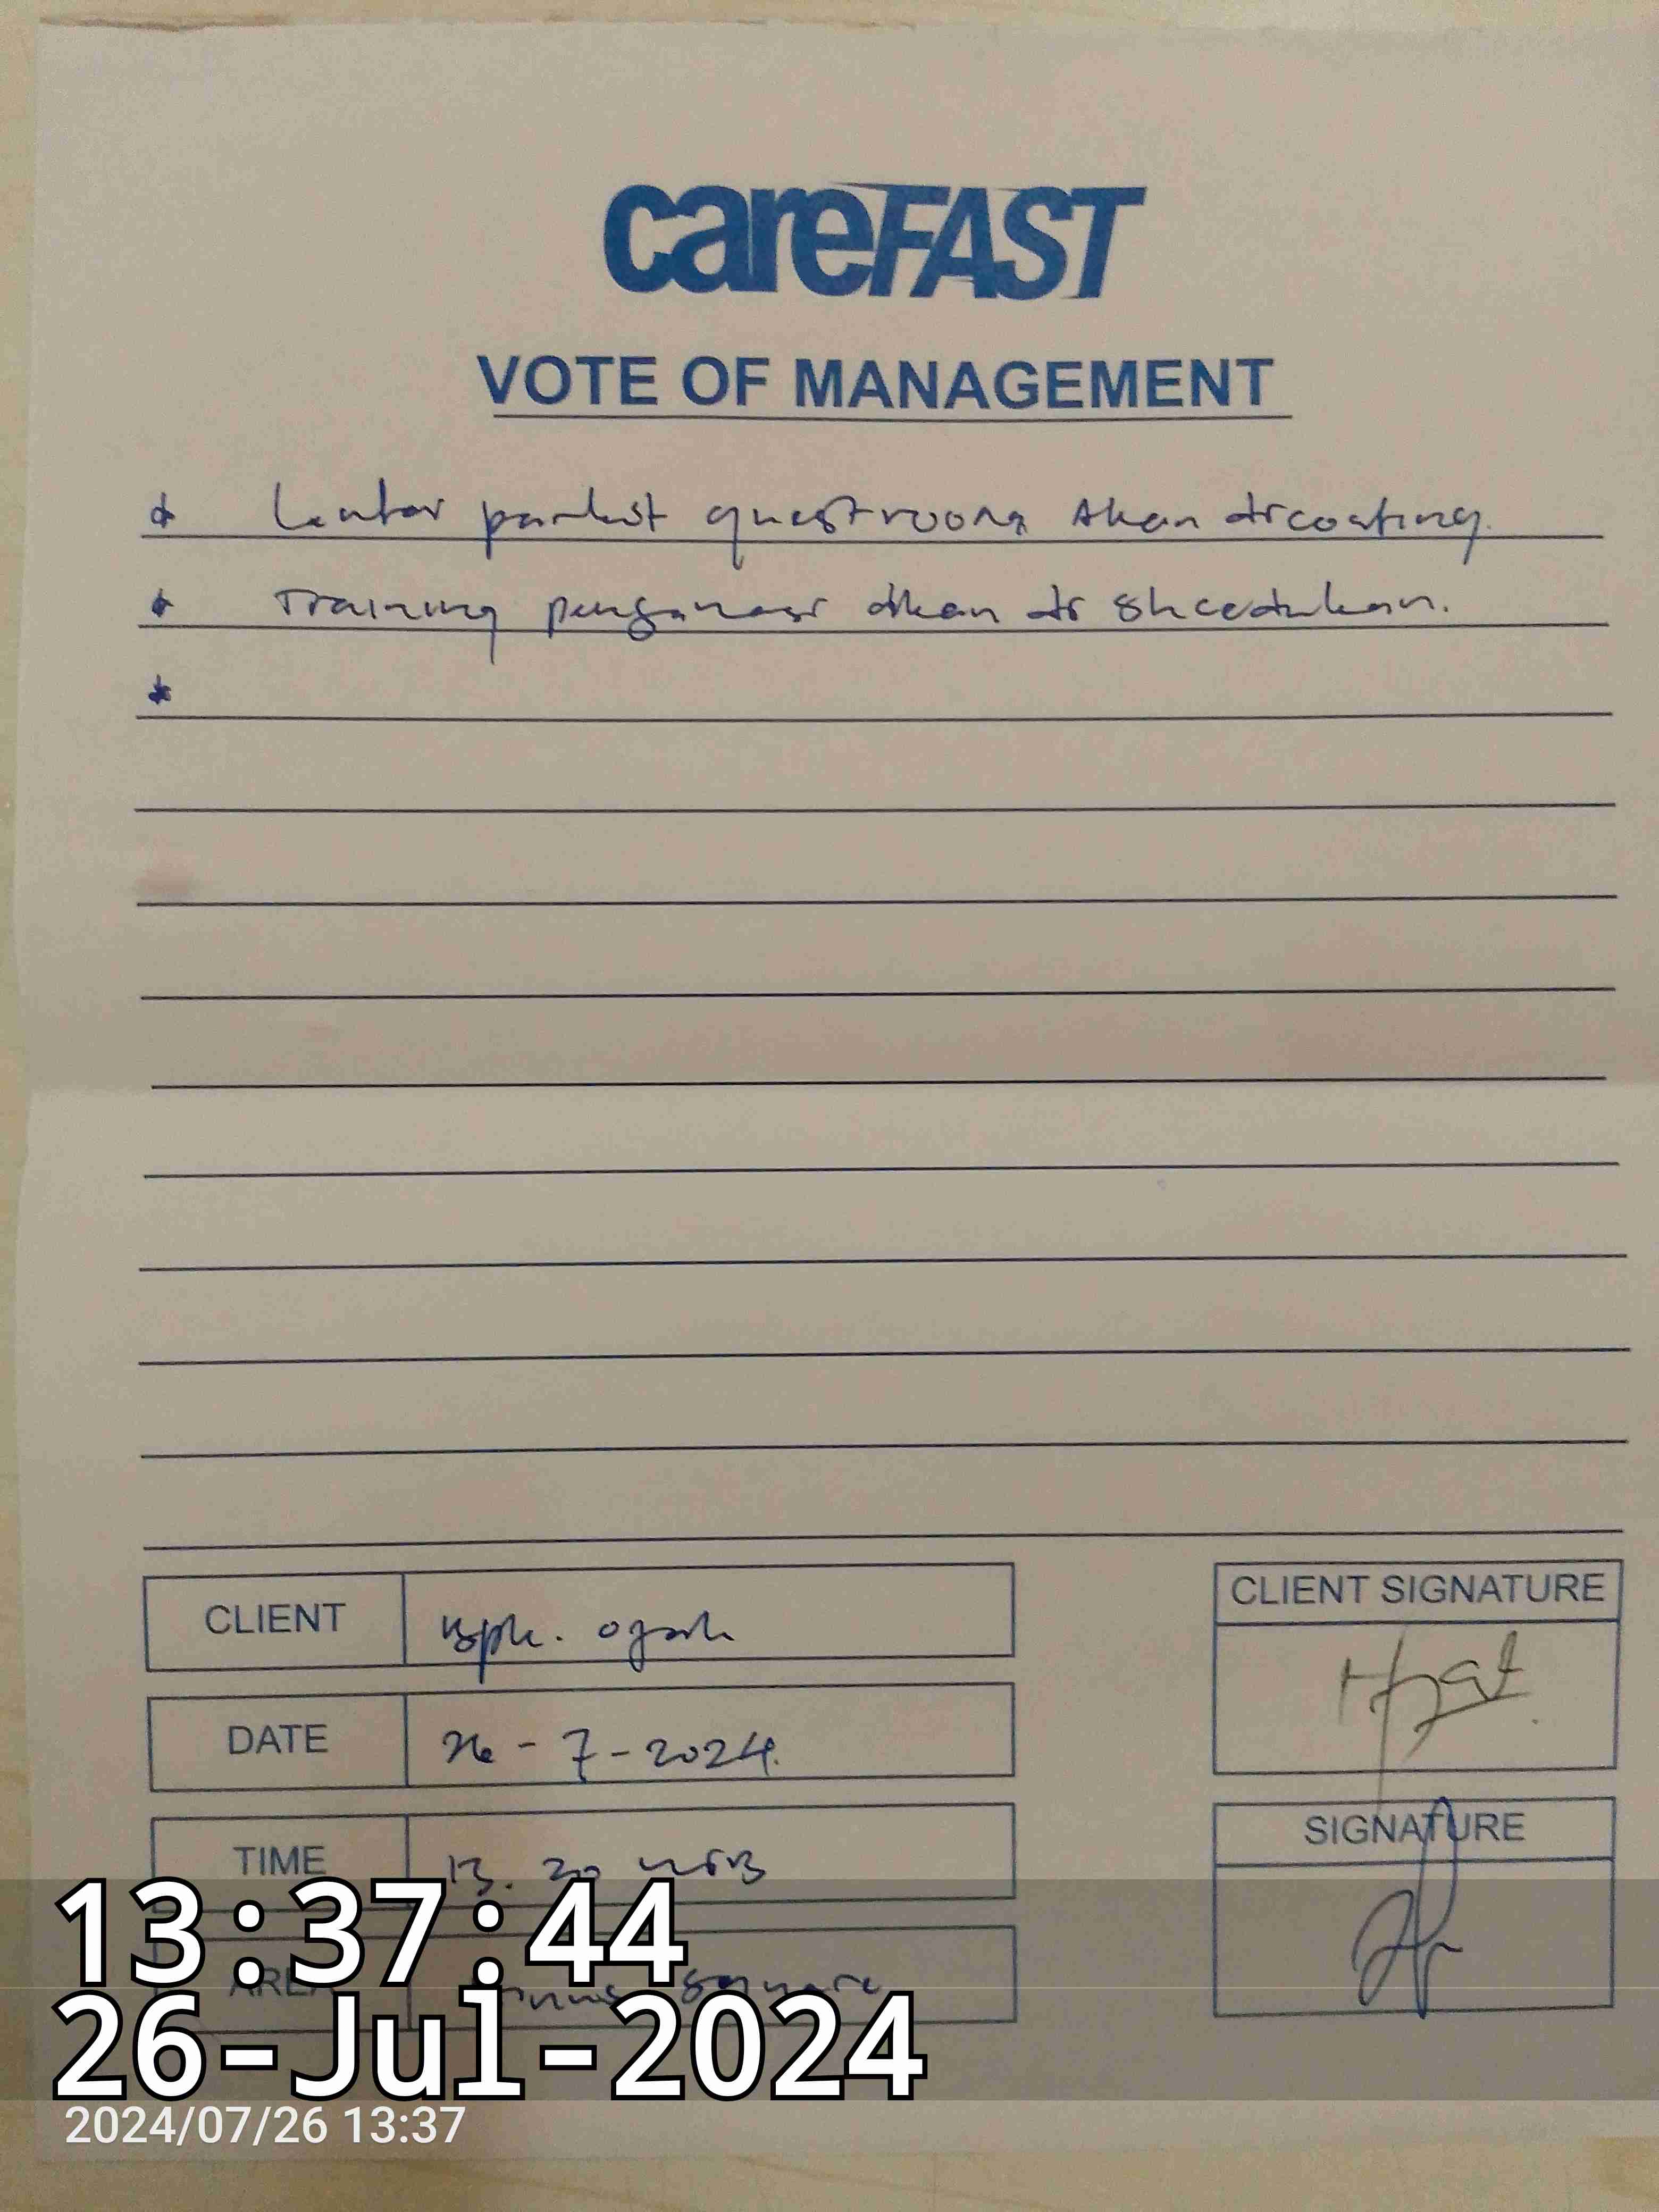 careFAST
VOTE OF MANAGEMENT
* Lantai parkit guestroom Akan dicoating.
* Training akan di shcedulkan.
*
CLIENT Bpk. Ogah
CLIENT SIGNATURE
DATE 26 - 7 - 2024
TIME 13. 20 WIB
SIGNATURE
13:37:44
AREA square
26-Jul-2024
2024/07/26 13:37